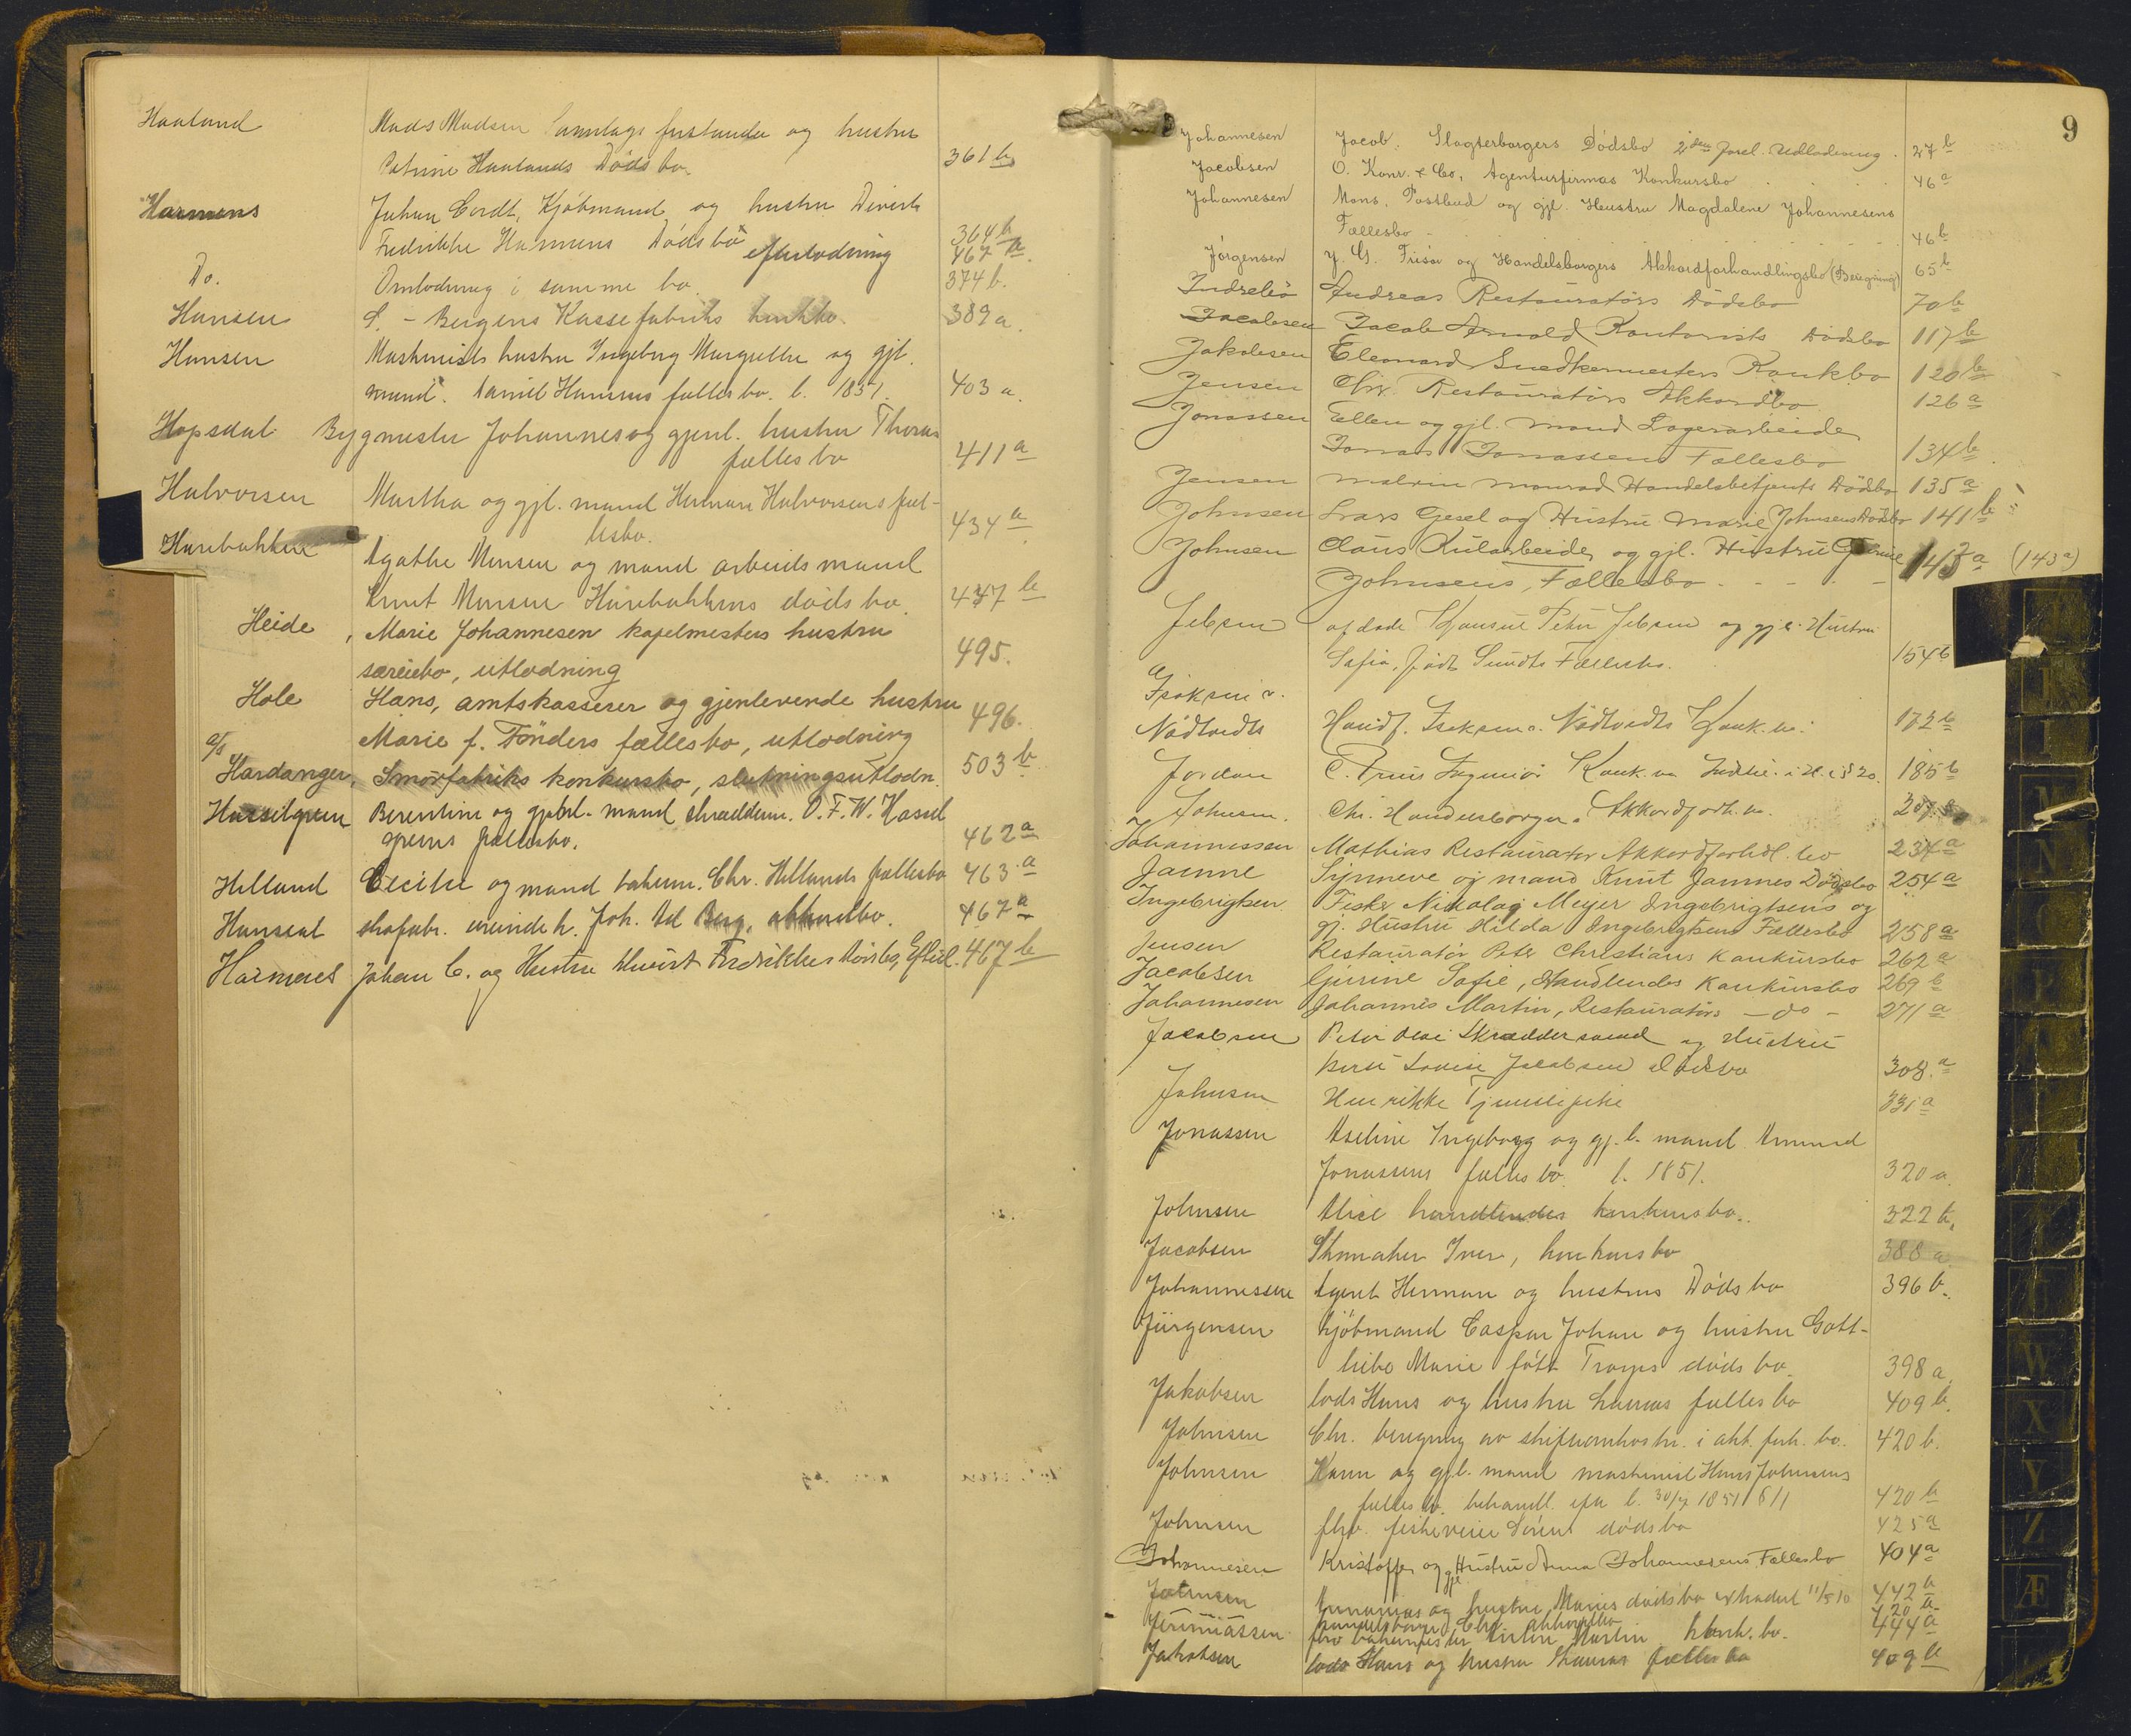 Haaland Mads Madsen og hustru
Petrine Haalands Dødsbo 361 b
Harmens Johan Cordt, Kjøbmand og hustru
Fredrikke Harmens Dødsbo efterlodning 364 b 467 b
Do. Omlodning i samme bo 374 b.
Hansen S. - Bergens Kassefabriks konkbo 389 a.
Hansen Maskinists hustru Ingeborg Margrethe og gjl.
mand Daniel Hansens fællesbo. l. 1851. 403 a.
Hopsdal Bygmester Johannes og gjenl. hustru Thoras
fællesbo 411 a
Halvorsen Martha og gjl. mand Herman Halvorsens fæl-
lesbo. 434 a
Harebakken Agathe Monsen og mand arbeidsmand
Knut Monsen Harebakkens dødsbo. 447 b
Heide, Marie Johannesen kapelmesters hustru
særeiebo, utlodning 495.
Hole Hans, amtskasserer og gjenlevende hustru
Marie f. Fönders fællesbo, utlodning 496.
a/s
Hardanger, Smørfabriks konkursbo, slutningsutlodn. 503 b
Hasselgreen Berentine og mand O. F. W. Hassel
greens fællesbo. 462 a
Helland Cecilie og mand Chr. Hellands fællesbo 463 a
Joh. akkordbo. 467 a
Harmens Johan C. og Hustru Fredrikkes 467 b
9
Johannesen Jacob, Slagterborgers Dødsbo 2den Udlodning. 27 b
Jacobsen O. Konr. & Co, Agenturfirmas Konkursbo 46 a
Johannesen Mons, Postbud og gjl. Heustru Magdalene Johannesens
Fællesbo 46 b
Jörgensen J. G. Frisør og Handelsborgers Akkordforhandlingsbo (Beregning) 65 b
Indrebö Andreas Restauratørs Dödsbo 70 b
Jacobsen Jacob Arnold Kontorists Dödsbo 117 b
Jakobsen Eleonard Snedkermesters Konkbo 120 b
Jensen Chr. Restauratörs Akkordbo 126 a
Jonassen Ellen og gjl. Mand Lagerarbeider
Jonas Jonassens Fællesbo 134 b
Jensen Monrad Handelsbetjents Dödsbo 135 a
Johnsen Lars Gesel og Hustru Marie Johnsens Dødsbo 141 b
Johnsen Claus Kularbeider og gjl. Hustru
Johnsens, Fællesbo 143 a (143 a)
Jebsen afdøde Konsul Peter Jebsen og gjl. Hustru
Sofia, født Sundts Fællesbo. 154 b
Isaksen &
Nödtvedts Handf. Isaksen & Nödtvedts Konk.bo. 172 b
Jordan C. Ingeniør Konk.bo 185 b
Johnsen. Chr. Handelsborger. Akkordforh. bo.
Johannessen Mathias Restauratør Akkordforhdl. bo 234 a
Jamne Synneve og mand Knut Jamnes Dødsbo 254 a
Ingebrigtsen Fisker Nikolai Meyer Ingebrigtsens og
gj. Hustru Hilda Ingebrigtsens Fællesbo 258 a
Jensen Restauratør Peter Christians Konkursbo 262 a
Jacobsen Gjurine Sofie, Handlendes Konkursbo 269 b
Johannesen Johannes Martin, Restauratørs - do - 271 a
Jacobsen Peter Skræddersvend og Hustru
Lovise Jacobsens Dødsbo 308 a
Johnsen Henrikke Tjenestepike 331 a
Jonassen Aseline Ingeborg og gj. l. mand Amund
Jonassens fællesbo l. 1851. 320 a.
Johnsen Alice handlendes konkursbo. 322 b.
Jacobsen Skomaker Iver, konkursbo 388 a
Johannessen Agent Herman og hustrus Dødsbo 396 b.
Jürgensen Kjøbmand Caspar Johan og hustru Gott-
liebe Marie født Troyes dødsbo. 398 a.
Jakobsen lods Hans og hustru Lauras fællesbo 409 b.
Johnsen Chr. beregning av skifteomkostn. i akk. forh. bo. 420 b.
Johnsen Karen og gjl. mand maskinist Hans Johnsens
fællesbo. behandl. efter l. 30/7 1851 § 11 420 b
Johnsen fhv. dødsbo 425 a
Johannesen Kristoffer og gjl Hustru Anna Johannesens Fællesbo 404 a
Johnsen og hustru Maries dødsbo 11/5 10 442 b
Handelsborger Chr. akkordbo 420 b
Jeremiassen Martin konk. bo. 444 a
Jakobsen lods Hans og hustru Lauras fællesbo 409 b
M
N
O
P
R
T
W
X
Y
Z
Æ